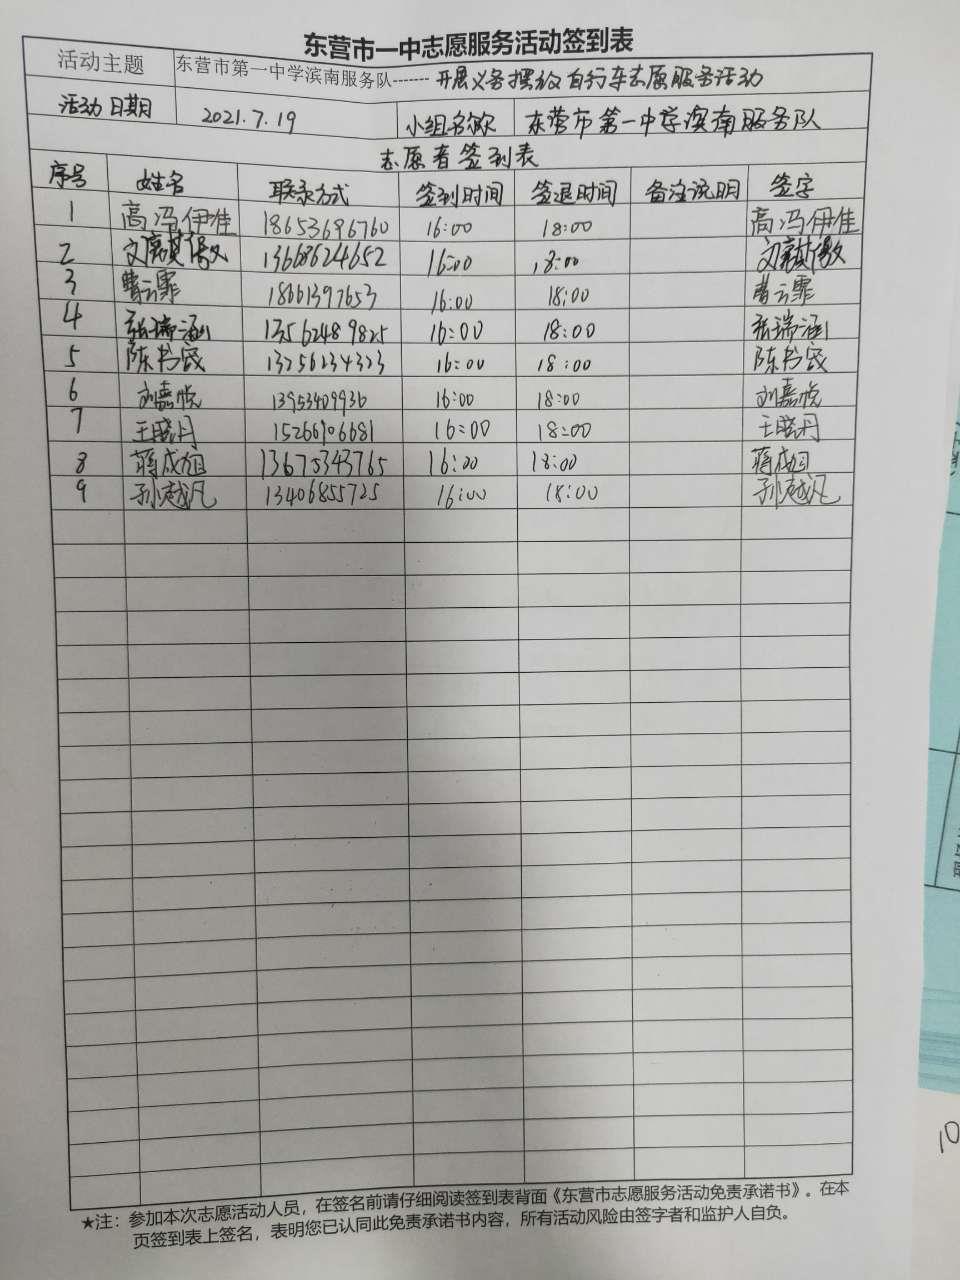 东营市一中志愿服务活动签到表
活动主题 东营市第一中学滨南服务队------- 开展义务摆放自行车志愿服务活动
活动日期 2021.7.19 小组名称 东营市第一中学滨南服务队
志愿者签到表
序号 姓名 联系方式 签到时间 签退时间 备注说明 签字
1 高冯伊佳 18653696760 16:00 18:00 高冯伊佳
2 13668624652 16:00 18:00
3 曹云霏 18661397653 16:00 18:00 曹云霏
4 张瑞涵 13562489825 16:00 18:00 张瑞涵
5 陈 13256234323 16:00 18:00 陈
6 刘嘉悦 13953409936 16:00 18:00 刘嘉悦
7 王晓丹 15266906681 16:00 18:00 王晓丹
8 蒋成旭 13675343765 16:00 18:00 蒋成旭
9 孙越凡 13406855725 16:00 18:00 孙越凡
★注：参加本次志愿活动人员，在签名前请仔细阅读签到表背面《东营市志愿服务活动免责承诺书》。在本
页签到表上签名，表明您已认同此免责承诺书内容，所有活动风险由签字者和监护人自负。
10